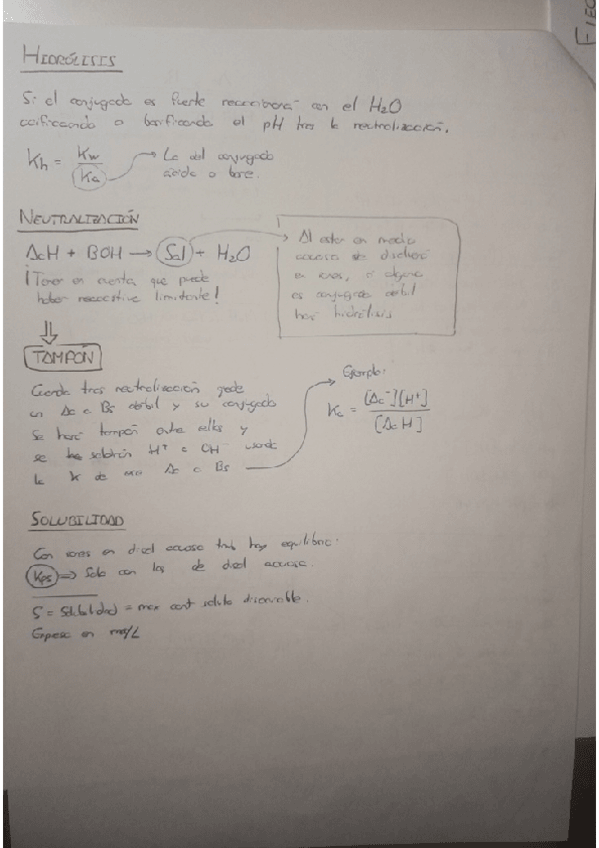 EJEC
HIDRÓLISIS
Si el conjugado es fuerte reaccionará con el H2O
acidificando o basificando el pH tras la neutralización.
Kh = Kw / Ka → La del conjugado
ácido o base.
NEUTRALIZACIÓN
AcH + BOH → Sal + H2O
¡Tener en cuenta que puede
haber reactivo limitante!
→ Al estar en medio
acuoso se
en iones, si alguno
es conjugado débil
hará hidrólisis
⇓
TAMPÓN
Cuando tras neutralización quede
un Ac o Bs débil y su conjugado
se hará tampón entre ellos y
se H+ o OH- usando
la K de ese Ac o Bs
Ejemplo:
Ka = [Ac-][H+] / [AcH]
SOLUBILIDAD
Con iones en disol acuosa tmb hay equilibrio.
Kps ⇒ Solo con los de disol acuosa.
S = Solubilidad = max cant soluto disolvible.
Expresa en mol/L